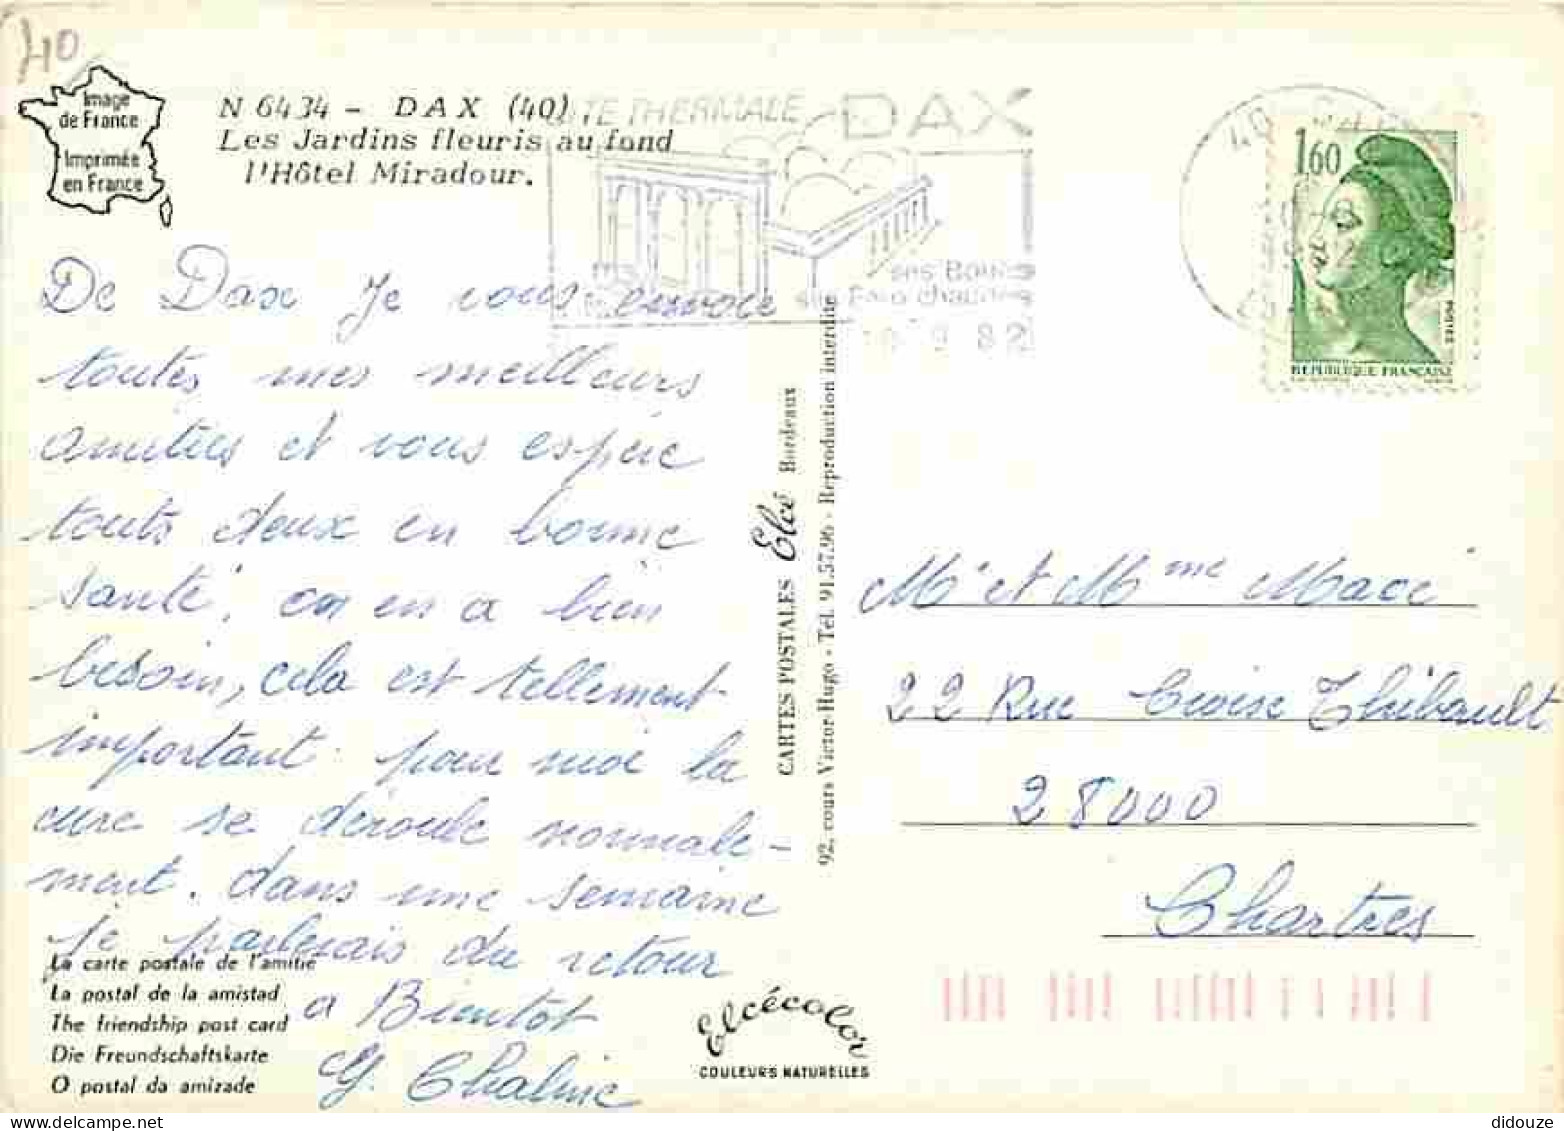 40
Image
de France
Imprimée
en France
N 6434 - DAX (40)
Les Jardins fleuris au fond
l'Hôtel Miradour.
THERMALE DAX
ses Boues
chaudes
9 82
1,60
POSTES
REPUBLIQUE FRANÇAISE
De Dax je vous envoie
toutes mes meilleurs
amitiés et vous espère
touts deux en bonne
santé, on en a bien
besoin, cela est tellement
important pour moi la
cure se déroule normale-
ment. dans une semaine
je parlerais du retour
a Bientôt
G. Chaline
La carte postale de l'amitié
La postal de la amistad
The friendship post card
Die Freundschaftskarte
O postal da amizade
CARTES POSTALES Elcé Bordeaux
92, cours Victor-Hugo - Tel. 91.57.96 - Reproduction interdite
Elcécolor
COULEURS NATURELLES
Mr et Mme Macé
22 Rue Croix Thibault
28000
Chartres
didouze